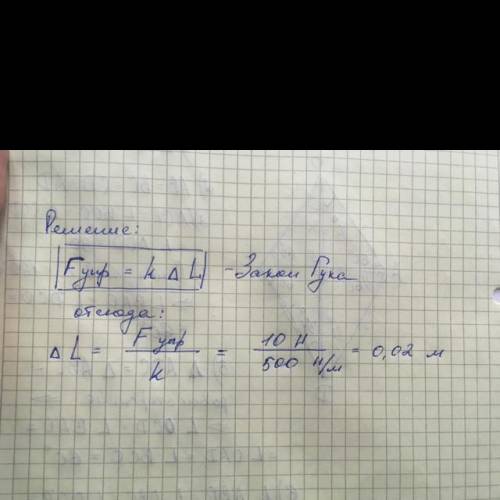 Решение:
Fупр = k Δ L - Закон Гука
отсюда:
Δ L = Fупр / k = 10 Н / 500 Н/м = 0,02 м